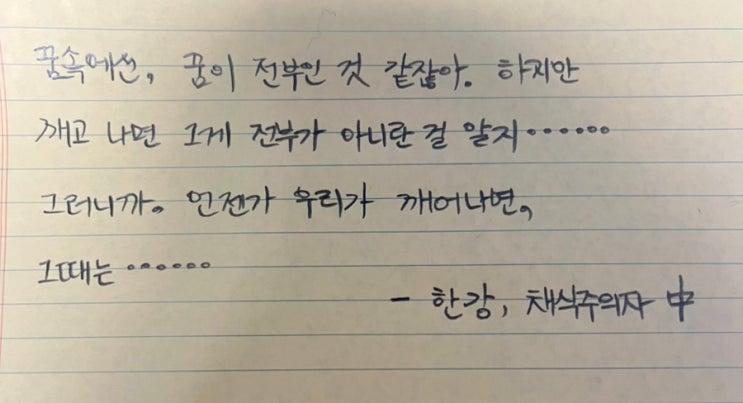 꿈속에선, 꿈이 전부인 것 같잖아. 하지만
깨고 나면 그게 전부가 아니란 걸 알지……
그러니까. 언젠가 우리가 깨어나면,
그때는……
- 한강, 채식주의자 中